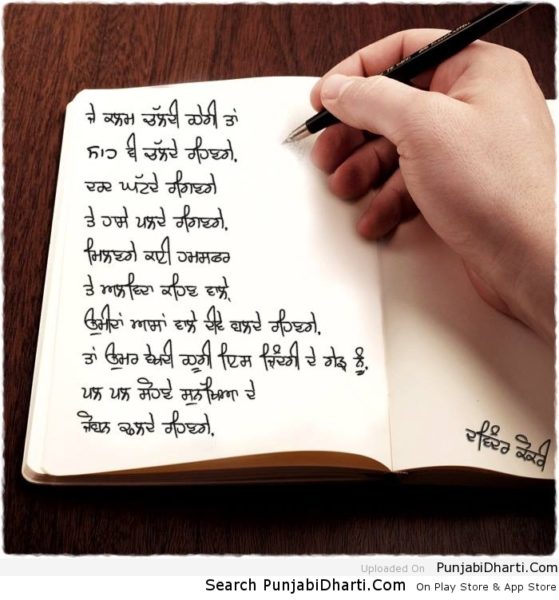 ਜੇ ਕਲਮ ਚੱਲਦੀ ਰਹੀ ਤਾਂ
ਸਾਹ ਵੀ ਚੱਲਦੇ ਰਹਿਣਗੇ,
ਦਰਦ ਘੱਟਦੇ ਰਹਿਣਗੇ
ਤੇ ਹਾਸੇ ਪਲਦੇ ਰਹਿਣਗੇ,
ਮਿਲਣਗੇ ਕਈ ਹਮਸਫਰ
ਤੇ ਅਲਵਿਦਾ ਕਹਿਣ ਵਾਲੇ,
ਉਮੀਦਾਂ ਆਸਾਂ ਵਾਲੇ ਦੀਵੇ ਬਲਦੇ ਰਹਿਣਗੇ,
ਤਾਂ ਉਮਰ ਦੇ ਇਸ ਜ਼ਿੰਦਗੀ ਦੇ ਗੇੜ ਨੂੰ,
ਪਲ ਪਲ ਸੋਹਣੇ ਸੁਨੱਖਿਆ ਦੇ
ਜੋਬਨ ਢਲਦੇ ਰਹਿਣਗੇ,
ਦਵਿੰਦਰ
Uploaded On PunjabiDharti.Com
Search PunjabiDharti.Com On Play Store & App Store